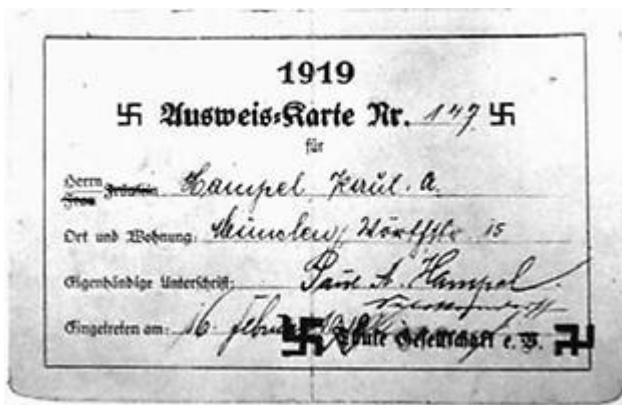 1919
卐 Ausweis-Karte Nr. 147 卐
für
Herrn Frau Fräulein Hampel, Paul. A.
Ort und Wohnung: München, Wörthstr. 15
Eigenhändige Unterschrift: Paul A. Hampel
Eingetreten am: 16. Februar 1919
Thule Gesellschaft e. V.